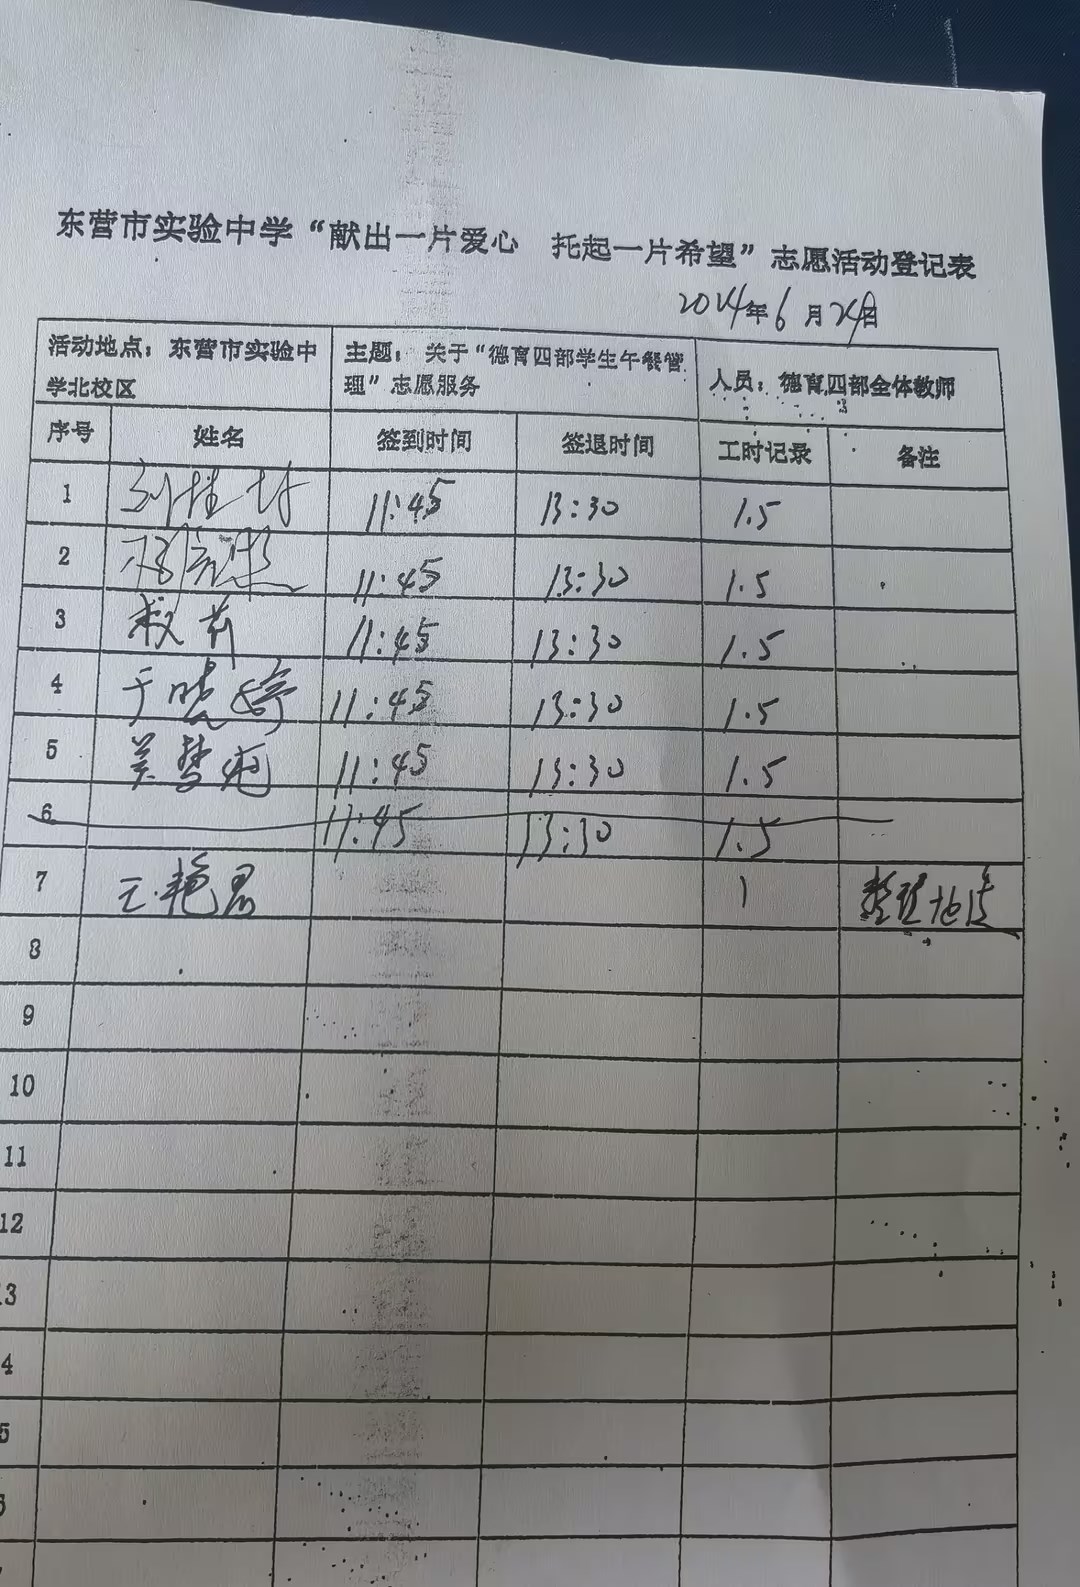 东营市实验中学“献出一片爱心 托起一片希望”志愿活动登记表
2024年6月24日
活动地点：东营市实验中学北校区 主题：关于“德育四部学生午餐管理”志愿服务 人员：德育四部全体教师
序号 姓名 签到时间 签退时间 工时记录 备注
1 11:45 13:30 1.5
2 11:45 13:30 1.5
3 11:45 13:30 1.5
4 于晓婷 11:45 13:30 1.5
5 11:45 13:30 1.5
6 11:45 13:30 1.5
7 艳君 1 整理
8
9
10
11
12
3
4
5